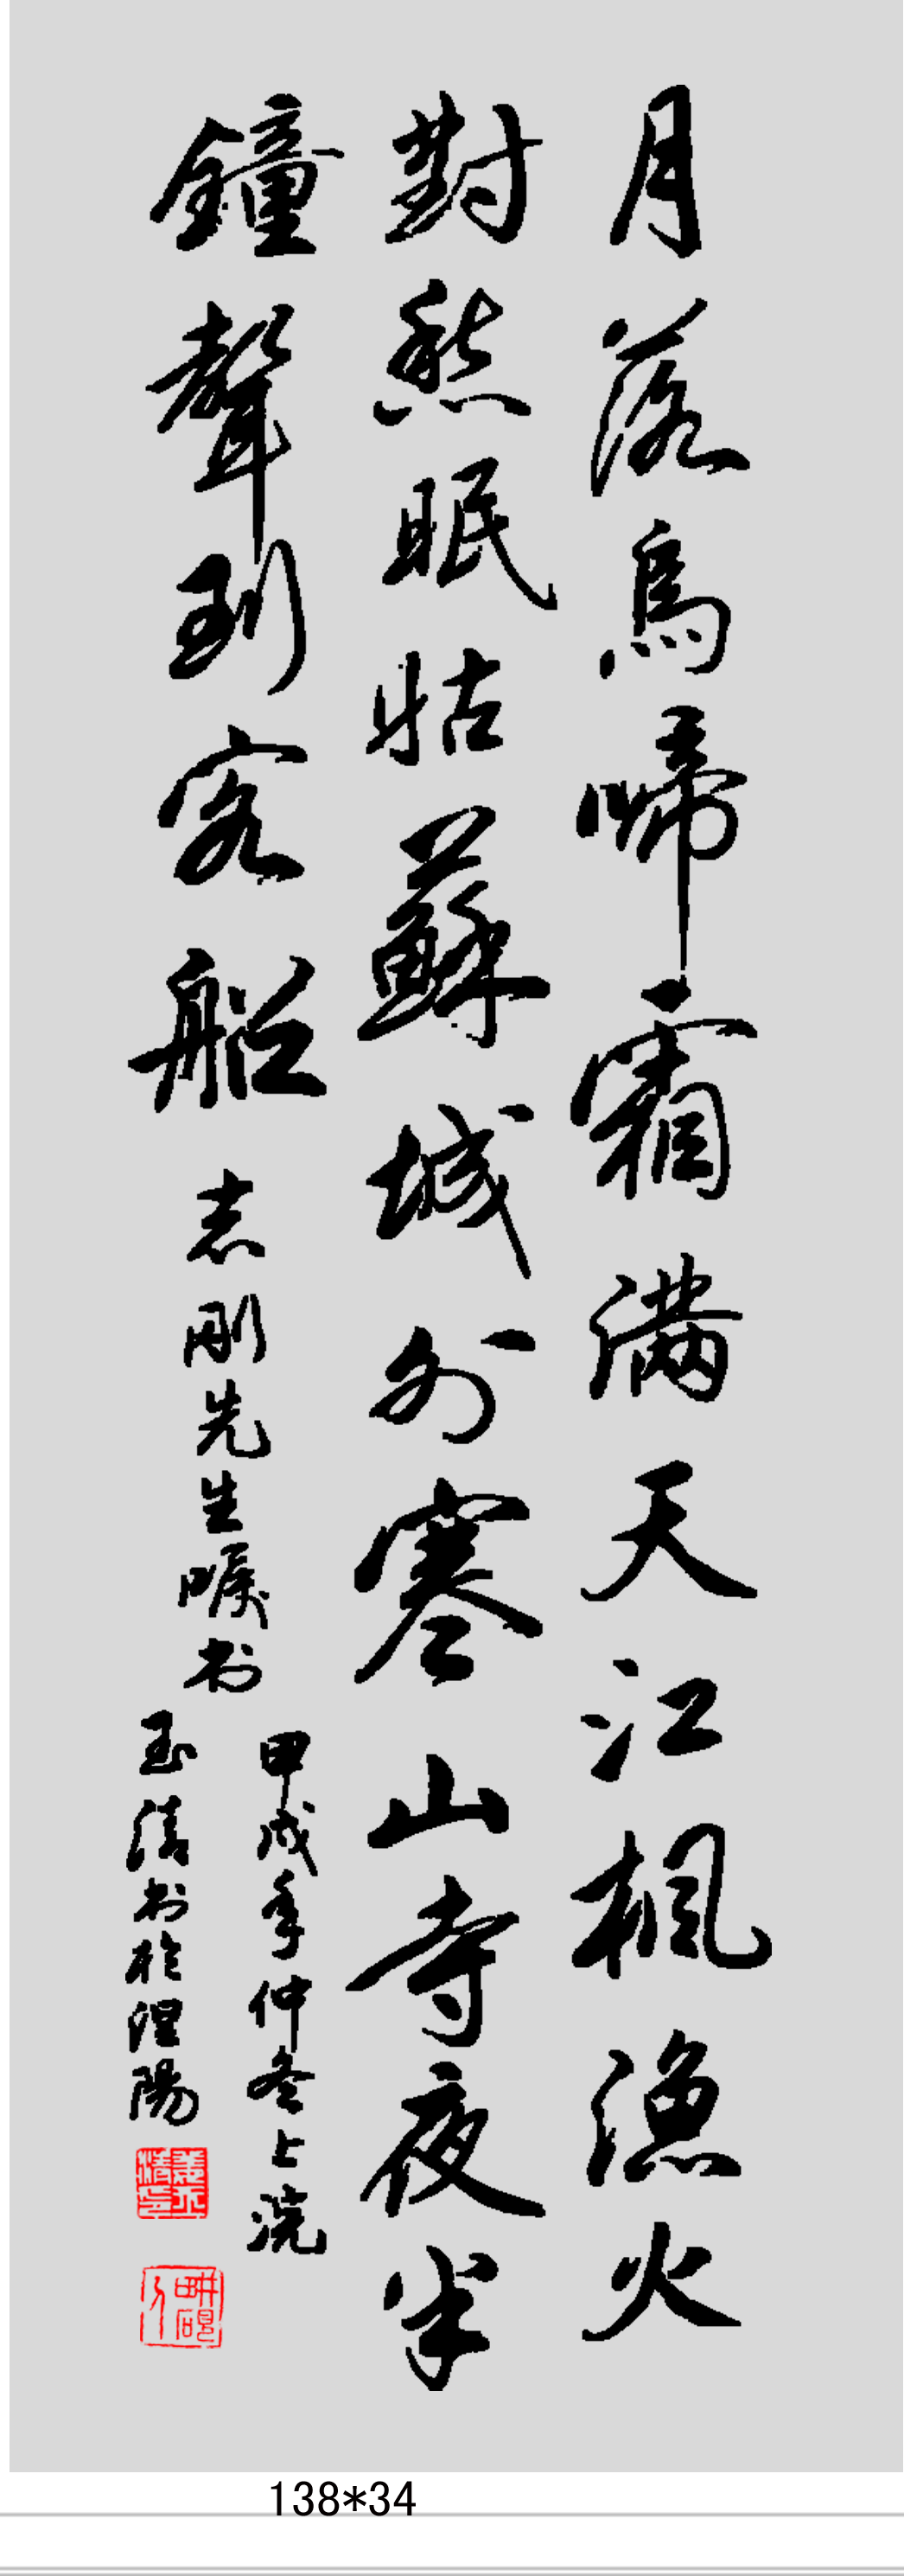 月落烏啼霜滿天江楓漁火
對愁眠姑蘇城外寒山寺夜半
鐘聲到客船
志剛先生嘱书
甲戌年仲冬上浣
玉清书於湼陽
138*34